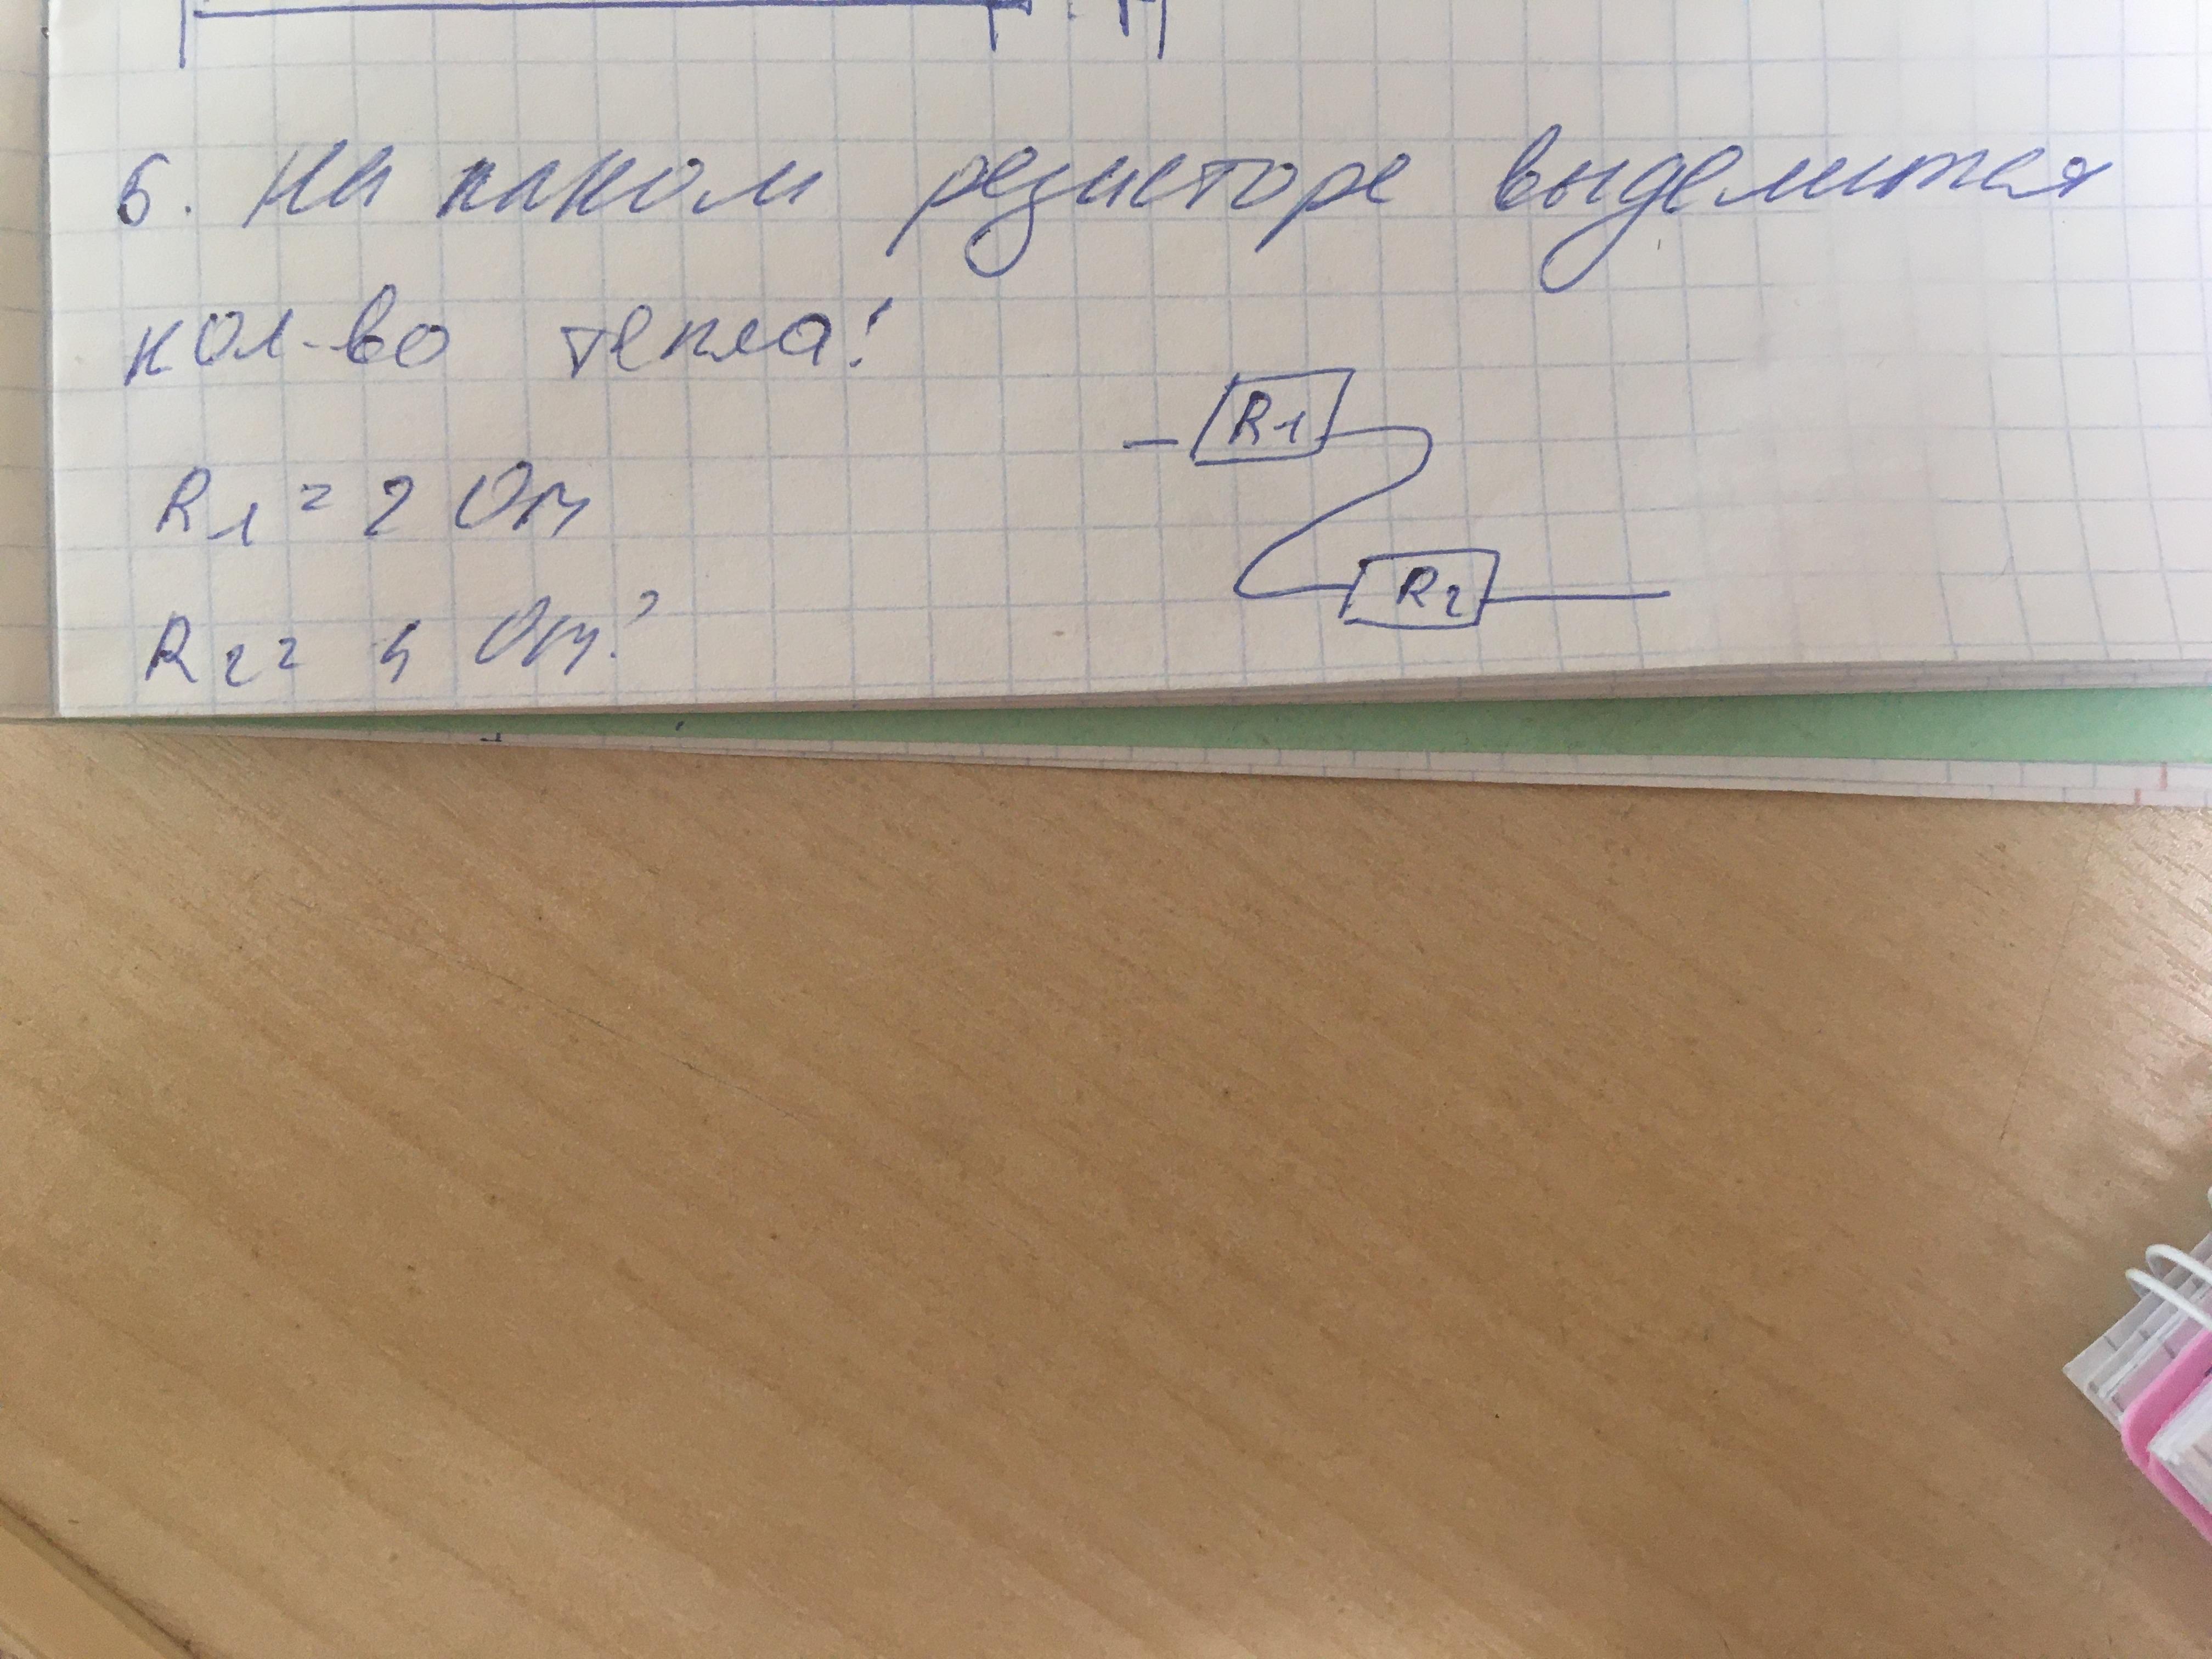 6. На каком резисторе выделится
кол-во тепла!
R1 = 2 Ом
R2 = 4 Ом?
R1
R2